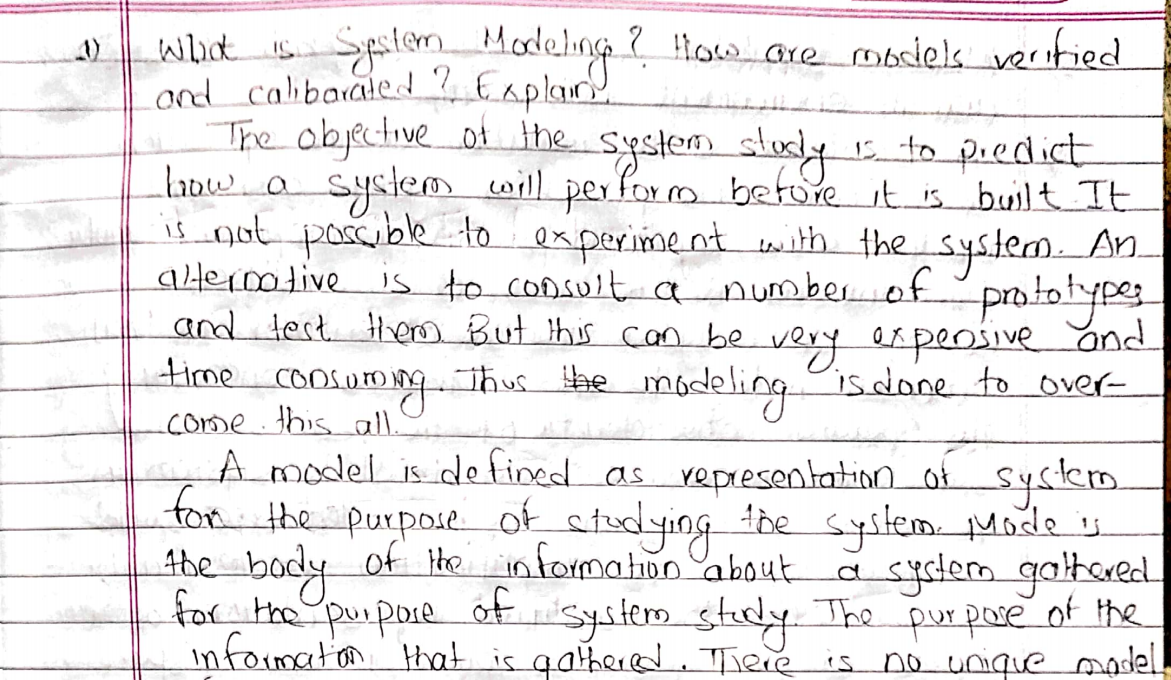 1) What is System Modeling? How are models verified
and calibarated? Explain.
The objective of the system study is to predict
how a system will perform before it is built. It
is not possible to experiment with the system. An
alternative is to consult a number of prototypes
and test them. But this can be very expensive and
time consuming. Thus the modeling is done to over-
come this all.
A model is defined as representation of system
for the purpose of studying the system. Mode is
the body of the information about a system gathered
for the purpose of system study. The purpose of the
informaton that is gathered. There is no unique model